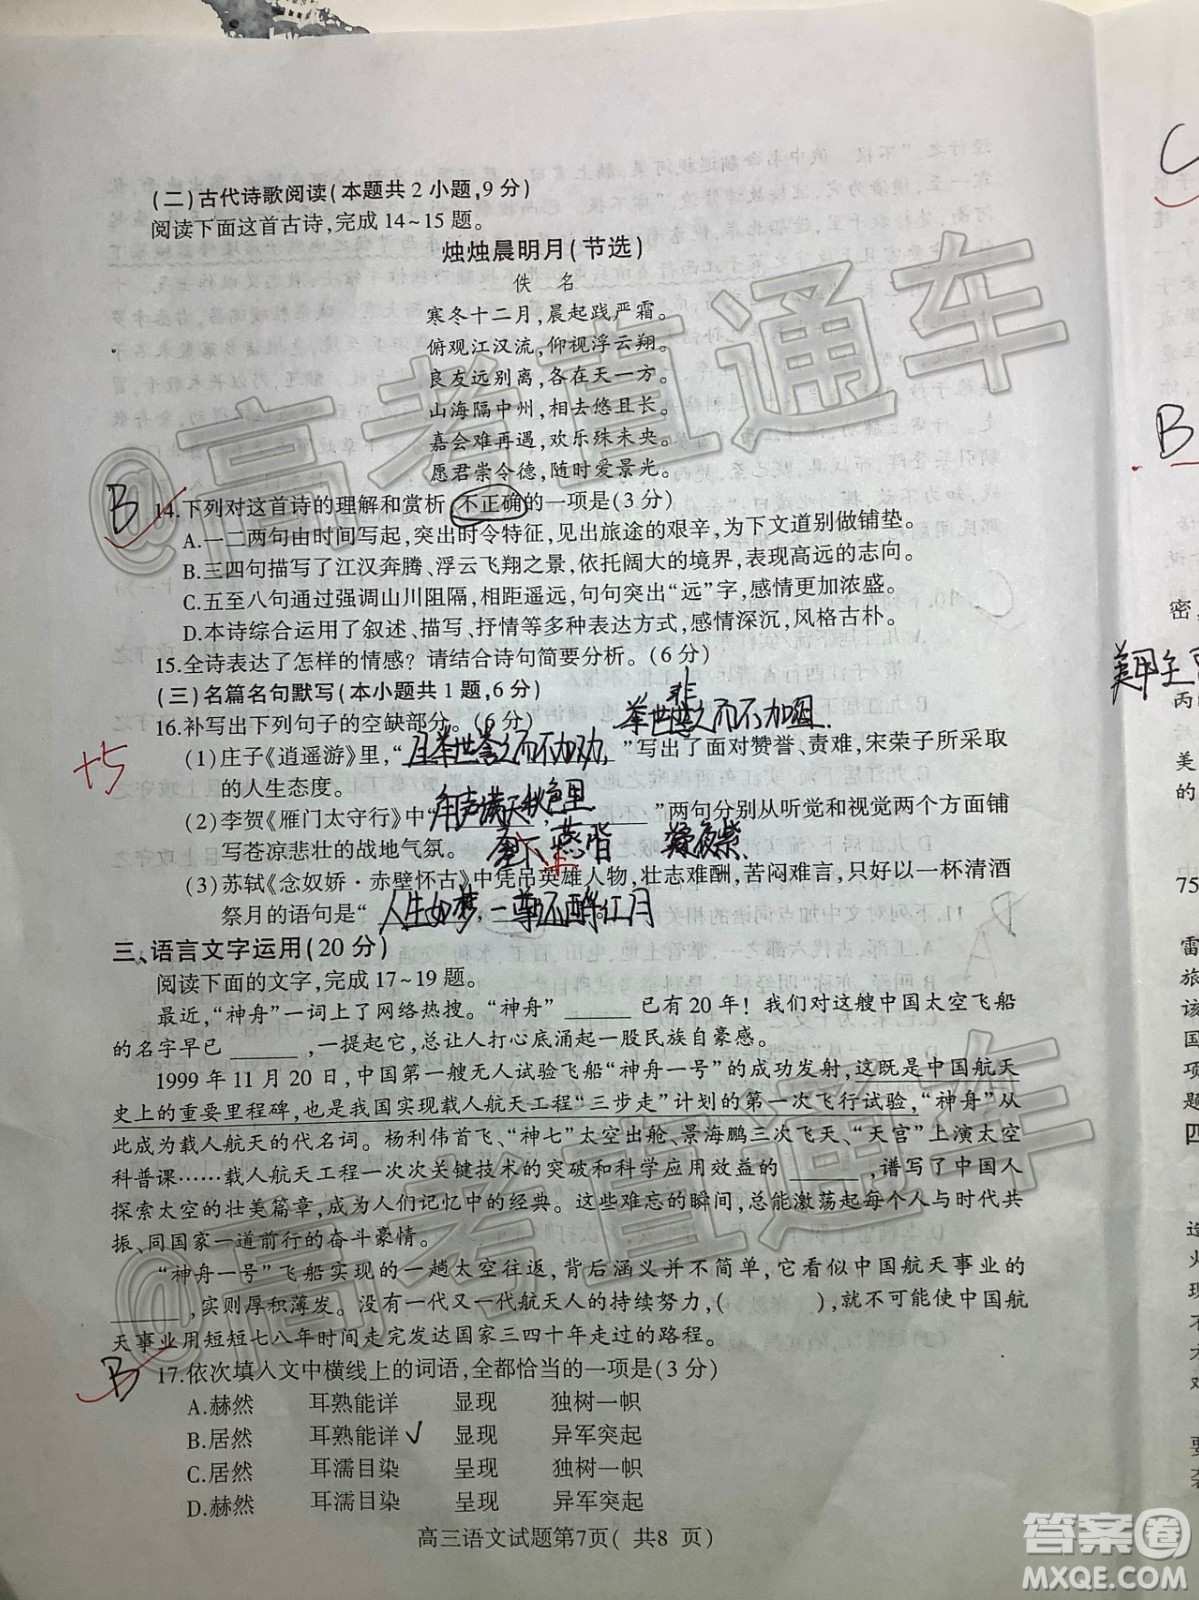 (二)古代诗歌阅读(本题共2小题,9分)
阅读下面这首古诗,完成14~15题。
烛烛晨明月(节选)
佚 名
寒冬十二月,晨起践严霜。
俯观江汉流,仰视浮云翔。
良友远别离,各在天一方。
山海隔中州,相去悠且长。
嘉会难再遇,欢乐殊未央。
愿君崇令德,随时爱景光。
B
14.下列对这首诗的理解和赏析不正确的一项是(3分)
A.一二两句由时间写起,突出时令特征,见出旅途的艰辛,为下文道别做铺垫。
B.三四句描写了江汉奔腾、浮云飞翔之景,依托阔大的境界,表现高远的志向。
C.五至八句通过强调山川阻隔,相距遥远,句句突出“远”字,感情更加浓盛。
D.本诗综合运用了叙述、描写、抒情等多种表达方式,感情深沉,风格古朴。
15.全诗表达了怎样的情感?请结合诗句简要分析。(6分)
(三)名篇名句默写(本小题共1题,6分)
16.补写出下列句子的空缺部分。(6分)
举世非之而不加沮
+5
(1)庄子《逍遥游》里,“且举世誉之而不加劝,”写出了面对赞誉、责难,宋荣子所采取
的人生态度。
(2)李贺《雁门太守行》中“角声满天秋色里,”两句分别从听觉和视觉两个方面铺
写苍凉悲壮的战地气氛。
塞 燕脂 凝夜紫
(3)苏轼《念奴娇·赤壁怀古》中凭吊英雄人物,壮志难酬,苦闷难言,只好以一杯清酒
祭月的语句是“人生如梦,一尊还酹江月
三、语言文字运用(20分)
阅读下面的文字,完成17~19题。
最近,“神舟”一词上了网络热搜。“神舟”______已有20年!我们对这艘中国太空飞船
的名字早已______,一提起它,总让人打心底涌起一股民族自豪感。
1999年11月20日,中国第一艘无人试验飞船“神舟一号”的成功发射,这既是中国航天
史上的重要里程碑,也是我国实现载人航天工程“三步走”计划的第一次飞行试验,“神舟”从
此成为载人航天的代名词。杨利伟首飞、“神七”太空出舱、景海鹏三次飞天、“天宫”上演太空
科普课……载人航天工程一次次关键技术的突破和科学应用效益的______,谱写了中国人
探索太空的壮美篇章,成为人们记忆中的经典。这些难忘的瞬间,总能激荡起每个人与时代共
振、同国家一道前行的奋斗豪情。
“神舟一号”飞船实现的一趟太空往返,背后涵义并不简单,它看似中国航天事业的
______,实则厚积薄发。没有一代又一代航天人的持续努力,(      ),就不可能使中国航
天事业用短短七八年时间走完发达国家三四十年走过的路程。
B
17.依次填入文中横线上的词语,全都恰当的一项是(3分)
A.赫然 耳熟能详 显现 独树一帜
B.居然 耳熟能详 显现 异军突起
C.居然 耳濡目染 呈现 独树一帜
D.赫然 耳濡目染 呈现 异军突起
高三语文试题第7页( 共8 页)
@高考直通车
@高考直通车
B
密,
丙
美
的
75
雷
旅
该
国
项
题
四
答案圈
MXQE.COM